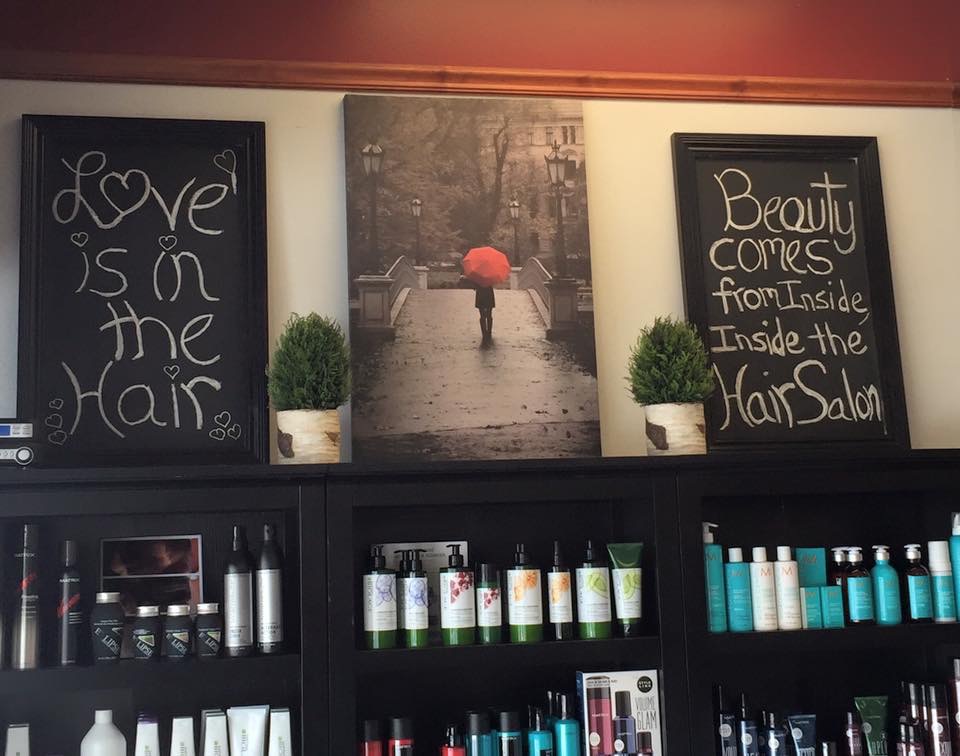 Love
is in
the
Hair
Beauty
comes
from Inside,
Inside the
Hair Salon
MATRIX
VOLUME
GLAM